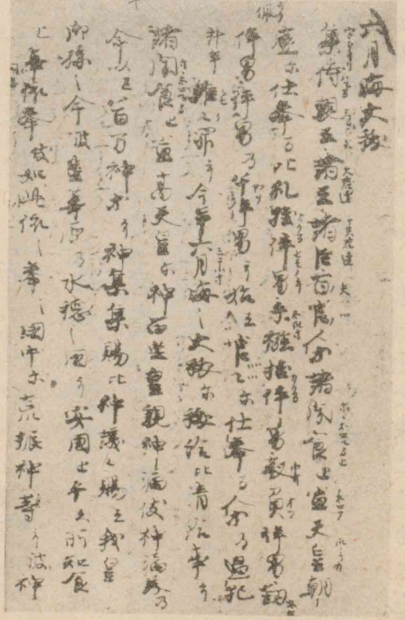 六月晦大祓
集侍親王諸王諸臣百官人等諸聞食止宣天皇朝
庭尓仕奉留比礼挂伴男手襁挂伴男靫負伴男釼
佩伴男伴男乃八十伴男乎始弖官々尓仕奉留人等乃過犯
雑々罪乎今年六月晦之大祓尓祓給比清給事乎
諸聞食止宣高天原尓神留坐皇親神漏岐神漏美乃
命以弖八百万神等乎神集集賜比神議々賜弖我皇
御孫之命波豊葦原乃水穂之国乎安国止平久所知食
止事依奉岐如此依之奉之国中尓荒振神等乎波神